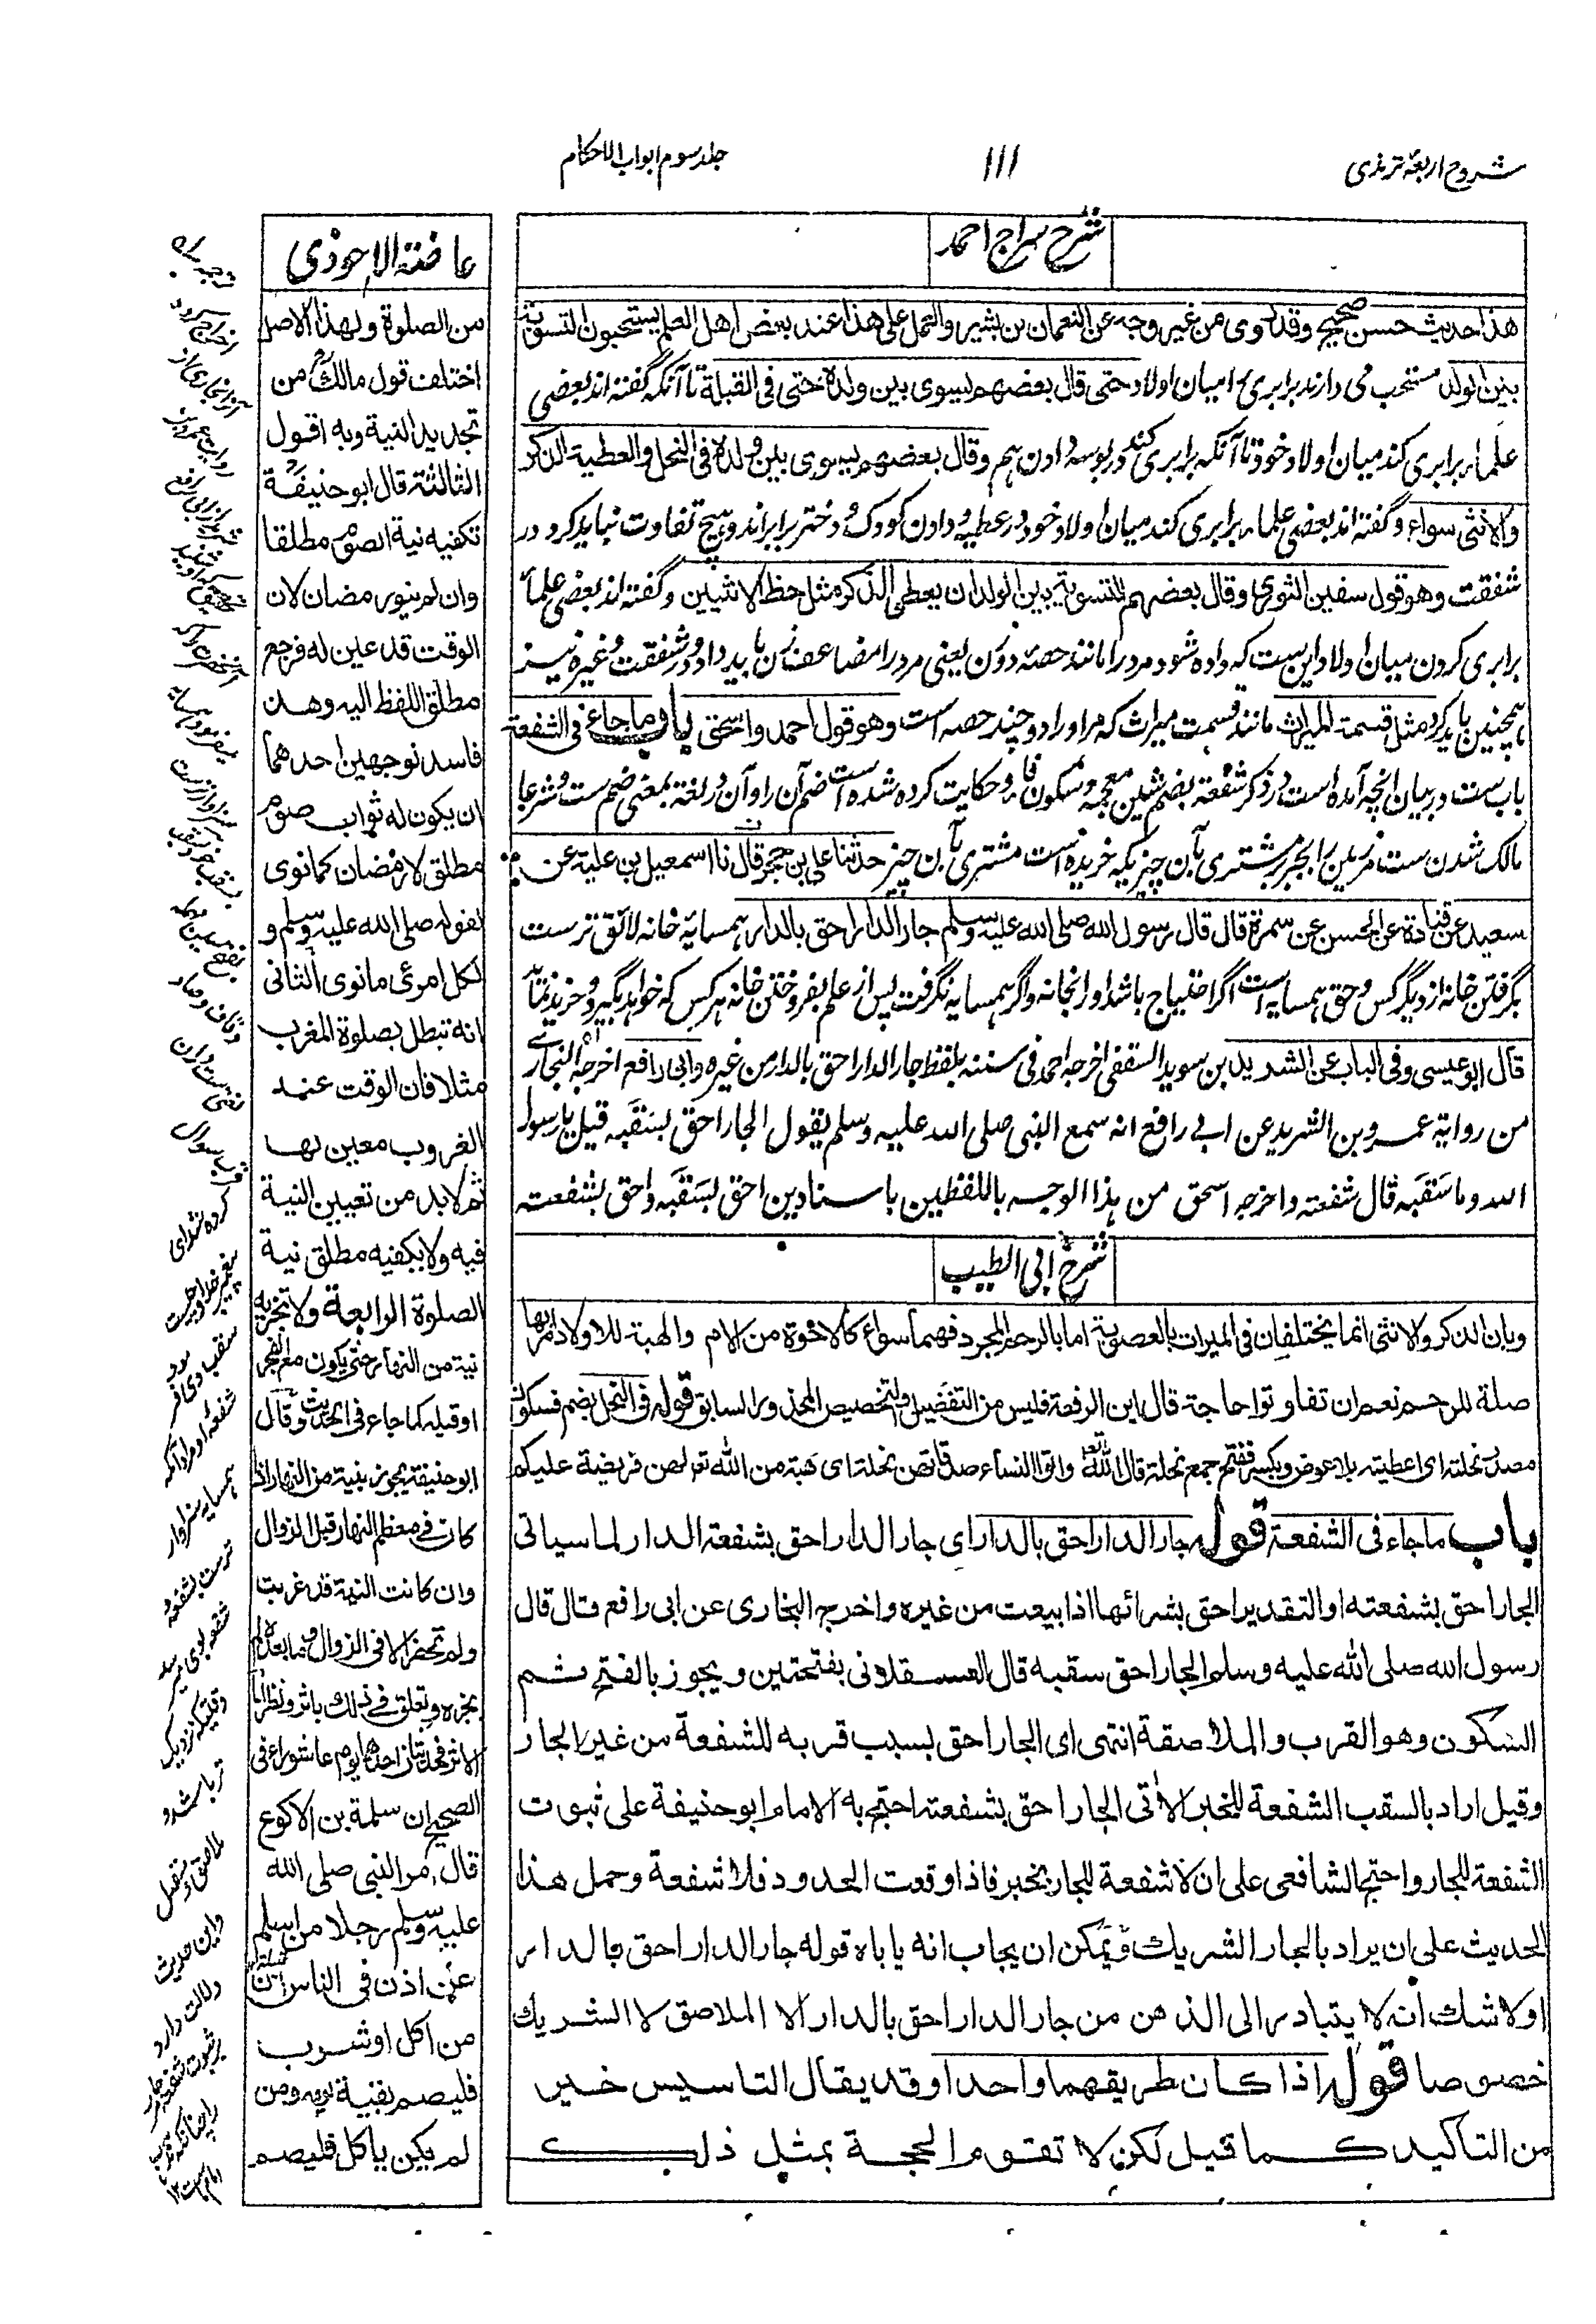 شروح اربعۂ ترمذی
۱۱۱
جلد سوم ابواب الاحکام
شرح سراج احمد
هذا حدیث حسن صحیح وقد روی من غیر وجه عن النعمان بن بشیر والعمل علی هذا عند بعض اهل العلم یستحبون التسویة
بین الولد مستحب می دارند برابری را میان اولاد حتی قال بعضهم یسوی بین ولده حتی فی القبلة تا آنکه گفته اند بعضی
علماء برابری کند میان اولاد خود تا آنکه برابری کند در بوسه دادن هم وقال بعضهم یسوی بین ولده فی النحل والعطیة الذکر
والانثی سواء و گفته اند بعضی علماء برابری کند میان اولاد خود در عطیه دادن کودک و دختر برابر اند و هیچ تفاوت نباید کرد در
شفقت وهو قول سفین الثوری وقال بعضهم التسویة بین الولد ان یعطی الذکر مثل حظ الانثیین و گفته اند بعضی علماء
برابری کردن میان اولاد این ست که داده شود مرد را مانند حصه دو زن یعنی مرد را مضاعف زن باید داد و در شفقت و غیره نیز
همچنین باید کرد مثل قسمة المیراث مانند قسمت میراث که مر او را دو چند حصه است وهو قول احمد واسحق باب ما جاء فی الشفعة
باب ست در بیان انچه آمده است در ذکر شفعة بضم شین معجمه وسکون فا و حکایت کرده شده است ضم آن را و آن در لغة بمعنی ضم ست و شرعا
مالک شدن ست مر زمین را بجبر بر مشتری بآن چیزیکه خریده است مشتری بآن چیز حدثنا علی بن حجر قال نا اسمعیل بن علیة عن
سعید عن قتادة عن الحسن عن سمرة قال قال رسول الله صلی الله علیه وسلم جار الدار احق بالدار همسایۂ خانه لائق ترست
بگرفتن خانه از دیگر کس و حق همسایه است اگر احتیاج باشد او را بخانه و اگر همسایه نگرفت پس از علم بفروختن خانه هر کس که خواهد بگیرد و خرید نماید
قال ابو عیسی وفی الباب عن الشرید بن سوید الثقفی اخرجه احمد فی سننه بلفظ جار الدار احق بالدار من غیره وابی رافع اخرجه البخاری
من روایة عمرو بن الشرید عن ابی رافع انه سمع النبی صلی الله علیه وسلم یقول الجار احق بسقبه قیل یا رسول
الله وما سقبه قال شفعته واخرجه اسحق من هذا الوجه باللفظین باسنادین احق بسقبه واحق بشفعته
شرح ابی الطیب
وبان الذکر والانثی انما یختلفان فی المیراث بالعصوبة اما بالرحم المجرد فهما سواء کالاخوة من الام والهبة للاولاد امر بها
صلة للرحم نعم ان تفاوتوا حاجة قال ابن الرفعة فلیس من التفضیل والتخصیص المحذور السابق قوله فی النحل بضم فسکون
مصدر نحلته ای اعطیته بلا عوض وبکسر ففتح جمع نحلة قال الله تعالی واتوا النساء صدقاتهن نحلة ای هبة من الله تعالی لهن فریضة علیکم
باب ما جاء فی الشفعة قوله جار الدار احق بالدار ای جار الدار احق بشفعة الدار لما سیاتی
الجار احق بشفعته او التقدیر احق بشرائها اذا بیعت من غیره واخرج البخاری عن ابی رافع قال قال
رسول الله صلی الله علیه وسلم الجار احق سقبه قال العسقلانی بفتحتین ویجوز بالفتح ثم
السکون وهو القرب والملاصقة انتهی ای الجار احق بسبب قربه للشفعة من غیر الجار
وقیل اراد بالسقب الشفعة للخبر الاتی الجار احق بشفعته احتج به الامام ابو حنیفة علی ثبوت
الشفعة للجار واحتج الشافعی علی ان لا شفعة للجار بخبر فاذا وقعت الحدود فلا شفعة وحمل هذا
الحدیث علی ان یراد بالجار الشریك ویمکن ان یجاب انه یاباه قوله جار الدار احق بالدار
اولا شك انه لا یتبادر الی الذهن من جار الدار احق بالدار الا الملاصق لا الشریك
خصوصا قوله اذا کان طریقهما واحدا وقد یقال التاسیس خیر
من التاکید کما قیل لکن لا تقوم الحجة بمثل ذلك
عاضة الاحوذی
من الصلوة ولهذا الاصل
اختلف قول مالك من
تجدید النیة وبه اقول
الثالثة قال ابو حنیفة
تکفیه نیة الصوم مطلقا
وان لم ینو رمضان لان
الوقت قد عین له فرجع
مطلق اللفظ الیه وهذا
فاسد لوجهین احدهما
ان یکون له ثواب صوم
مطلق لا رمضان کما نوی
لقوله صلی الله علیه وسلم و
لکل امرئ ما نوی الثانی
انه تبطل بصلوة المغرب
مثلا فان الوقت عند
الغروب معین لها
ثم لا بد من تعیین النیة
فیه ولا یکفیه مطلق نیة
الصلوة الرابعة ولا تجزیه
نیة من النهار حتی یکون مع الفجر
او قبله کما جاء فی الحدیث وقال
ابو حنیفة یجوز بنیة من النهار اذا
کان فی معظم النهار قبل الزوال
وان کانت النیة قد غربت
ولم تحضر الا فی الزوال وما بعده لم
یجزه وتعلق فی ذلك باثر ونظر اما
الاثر فحدیثان احدهما یوم عاشوراء فی
الصحیح ان سلمة بن الاکوع
قال امر النبی صلی الله
علیه وسلم رجلا من اسلم
اذن فی الناس ان
من اکل او شرب
فلیصم بقیة یومه ومن
لم یکن یاکل فلیصم
کرده شد ای
پیغمبر خدا و چیست
همسایه سزاوار
ترست بشفعه
وقتیکه نزدیک
تر باشد و
واین حدیث
دلالت دارد